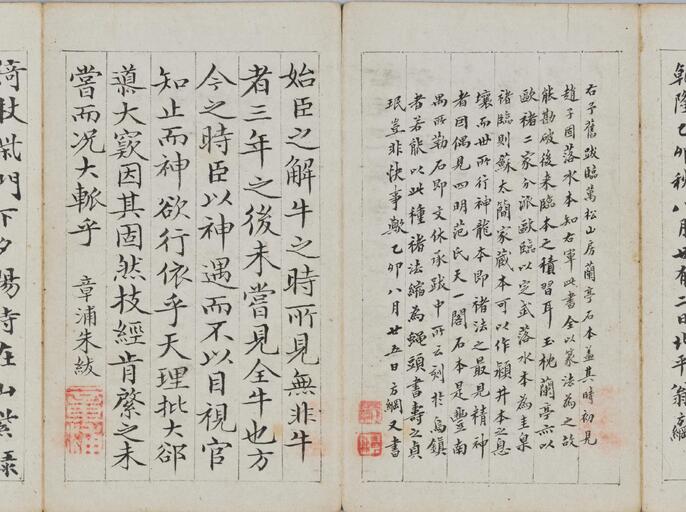 乾隆乙卯秋八月廿有二日北平翁綱
右子舊跋臨萬松山房蘭亭石本並其時初見
趙子固落水本知右軍此書全以篆法為之故
能勘破後來臨本之積習耳玉枕蘭亭亦以
歐褚二家分派歐臨以定武落水本為圭臬
褚臨則蘇太簡家藏本可以作潁井本之息
壤而世所行神龍本即褚法之最見精神
者因偶見四明范氏天一閣石本是豐南
禺所勒石即文休承跋中所云刻於烏鎮
者若能以此種褚法縮為蠅頭書壽之貞
珉豈非快事歟乙卯八月廿五日方綱又書
始臣之解牛之時所見無非牛
者三年之後未嘗見全牛也方
今之時臣以神遇而不以目視官
知止而神欲行依乎天理批大郤
導大窾因其固然技經肯綮之未
嘗而況大軱乎 章浦朱紱
倚杖柴門下夕陽時在山